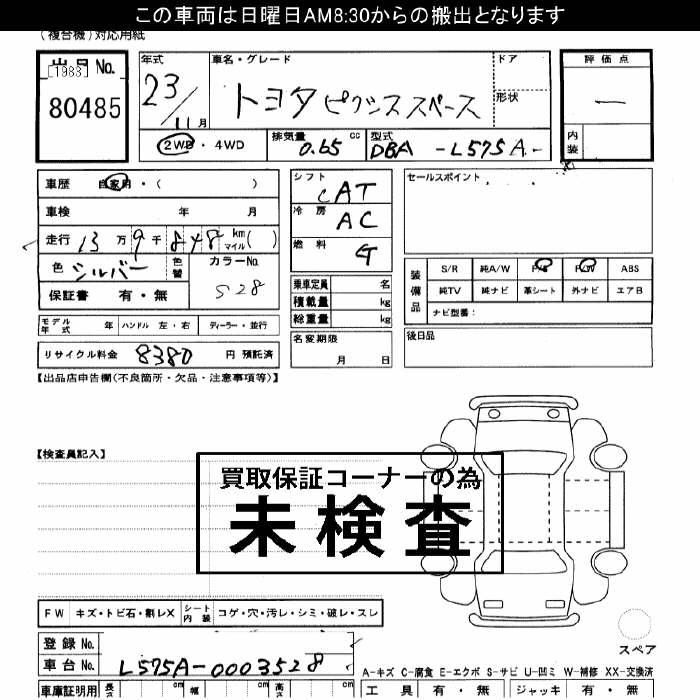 この車両は日曜日AM8:30からの搬出となります
(複合機)対応用紙
出品No.
[1983]
80485
年式
23/11月
車名・グレード
トヨタ ピクシススペース
ドア
形状
2WD・4WD
排気量 0.65 cc
型式 DBA -L575A-
評価点
内装
車歴 自家用・( )
車検 年 月
走行 13万9千848 km マイル( )
色 シルバー 色替
カラーNo. S28
保証書 有・無
シフト
CAT
冷房
AC
燃料
G
乗車定員 名
積載量 kg
総重量 kg
セールスポイント
装備品
S/R 純A/W P/S P/W ABS
純TV 純ナビ 革シート 外ナビ エアB
ナビ型番:
モデル年式 年 ハンドル 左・右 ディーラー・並行
リサイクル料金 8380 円 預託済
名変期限
月 日
後日品
【出品店申告欄(不良箇所・欠品・注意事項等)】
【検査員記入】
買取保証コーナーの為
未検査
FW キズ・トビ石・割レX シート内装 コゲ・穴・汚レ・シミ・破レ・スレ
スペア
登録No.
車台No. L575A-0003528
A-キズ C-腐食 E-エクボ S-サビ U-凹ミ W-補修 XX-交換済
車庫証明用 長さ cm 幅 cm 高さ cm
工具 有・無 ジャッキ 有・無